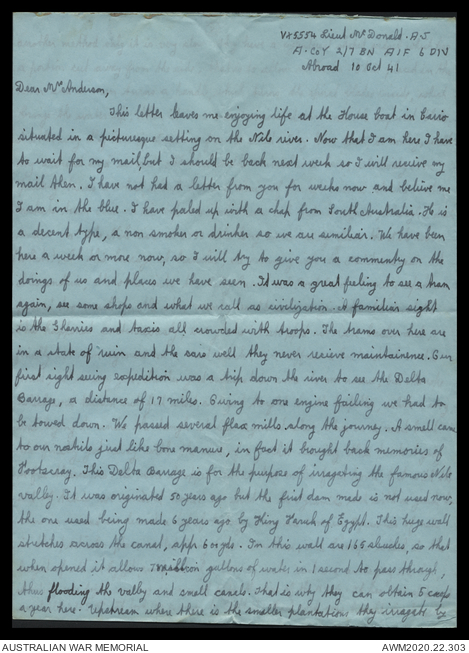 VX5554 Lieut McDonald. A.J
A. COY 2/7 BN A I F 6 DIV
Abroad 10 Oct 41
Dear Mrs Anderson,
This letter leaves me enjoying life at the House boat in Cairo
situated in a picturesque setting on the Nile river. Now that I am here I have
to wait for my mail, but I should be back next week so I will recieve my
mail then. I have not had a letter from you for weeks now and believe me
I am in the blue. I have paled up with a chap from South Australia. He is
a decent type, a non smoker or drinker so we are similiar. We have been
here a week or more now, so I will try to give you a commentry on the
doings of us and places we have seen. It was a great feeling to see a tram
again, see some shops and what we call as civilization. A familiar sight
is the Gherries and taxis all crowded with troops. The trams over here are
in a state of ruin and the cars well they never recieve maintainence. Our
first sight seeing expedition was a trip down the river to see the Delta
Barrage, a distance of 17 miles. Owing to one engine failing we had to
be towed down. We passed several flax mills along the journey. A smell came
to our nostrils just like bone manure, in fact it bought back memories of
Footscray. This Delta Barrage is for the purpose of irragating the famous Nile
vally. It was originated 50 years ago but the first dam made is not used now,
the one used being made 6 years ago by King Faruk of Egypt. This huge wall
stretches across the canal, appr 600 yds. In this wall are 165 sluches, so that
when opened it allows million gallons of water in 1 second to pass through,
thus flooding the vally and small canals. That is why they can obtain 5 crops
a year here. Upstream where there is the smaller plantations they irragate by
AUSTRALIAN WAR MEMORIAL
AWM2020.22.303